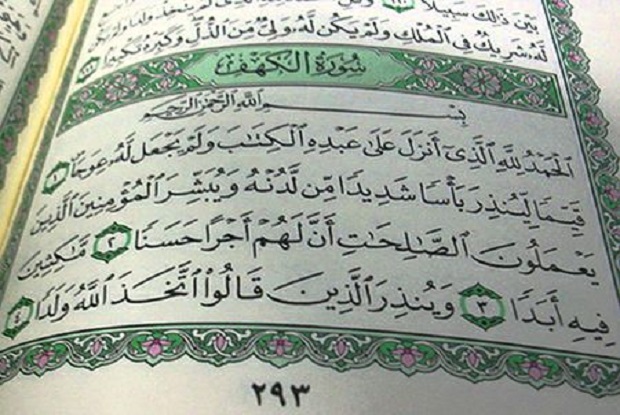 بَيْنَ ذَٰلِكَ سَبِيلًا ١١٠
لَّهُۥ شَرِيكٌ فِى ٱلْمُلْكِ وَلَمْ يَكُن لَّهُۥ وَلِىٌّ مِّنَ ٱلذُّلِّ وَكَبِّرْهُ تَكْبِيرًا ١١١
سُورَةُ ٱلْكَهْفِ
بِسْمِ ٱللَّهِ ٱلرَّحْمَٰنِ ٱلرَّحِيمِ
ٱلْحَمْدُ لِلَّهِ ٱلَّذِىٓ أَنزَلَ عَلَىٰ عَبْدِهِ ٱلْكِتَٰبَ وَلَمْ يَجْعَل لَّهُۥ عِوَجَا ١
قَيِّمًا لِّيُنذِرَ بَأْسًا شَدِيدًا مِّن لَّدُنْهُ وَيُبَشِّرَ ٱلْمُؤْمِنِينَ ٱلَّذِينَ
يَعْمَلُونَ ٱلصَّٰلِحَٰتِ أَنَّ لَهُمْ أَجْرًا حَسَنًا ٢ مَّٰكِثِينَ
فِيهِ أَبَدًا ٣ وَيُنذِرَ ٱلَّذِينَ قَالُوا۟ ٱتَّخَذَ ٱللَّهُ وَلَدًا ٤
٢٩٣